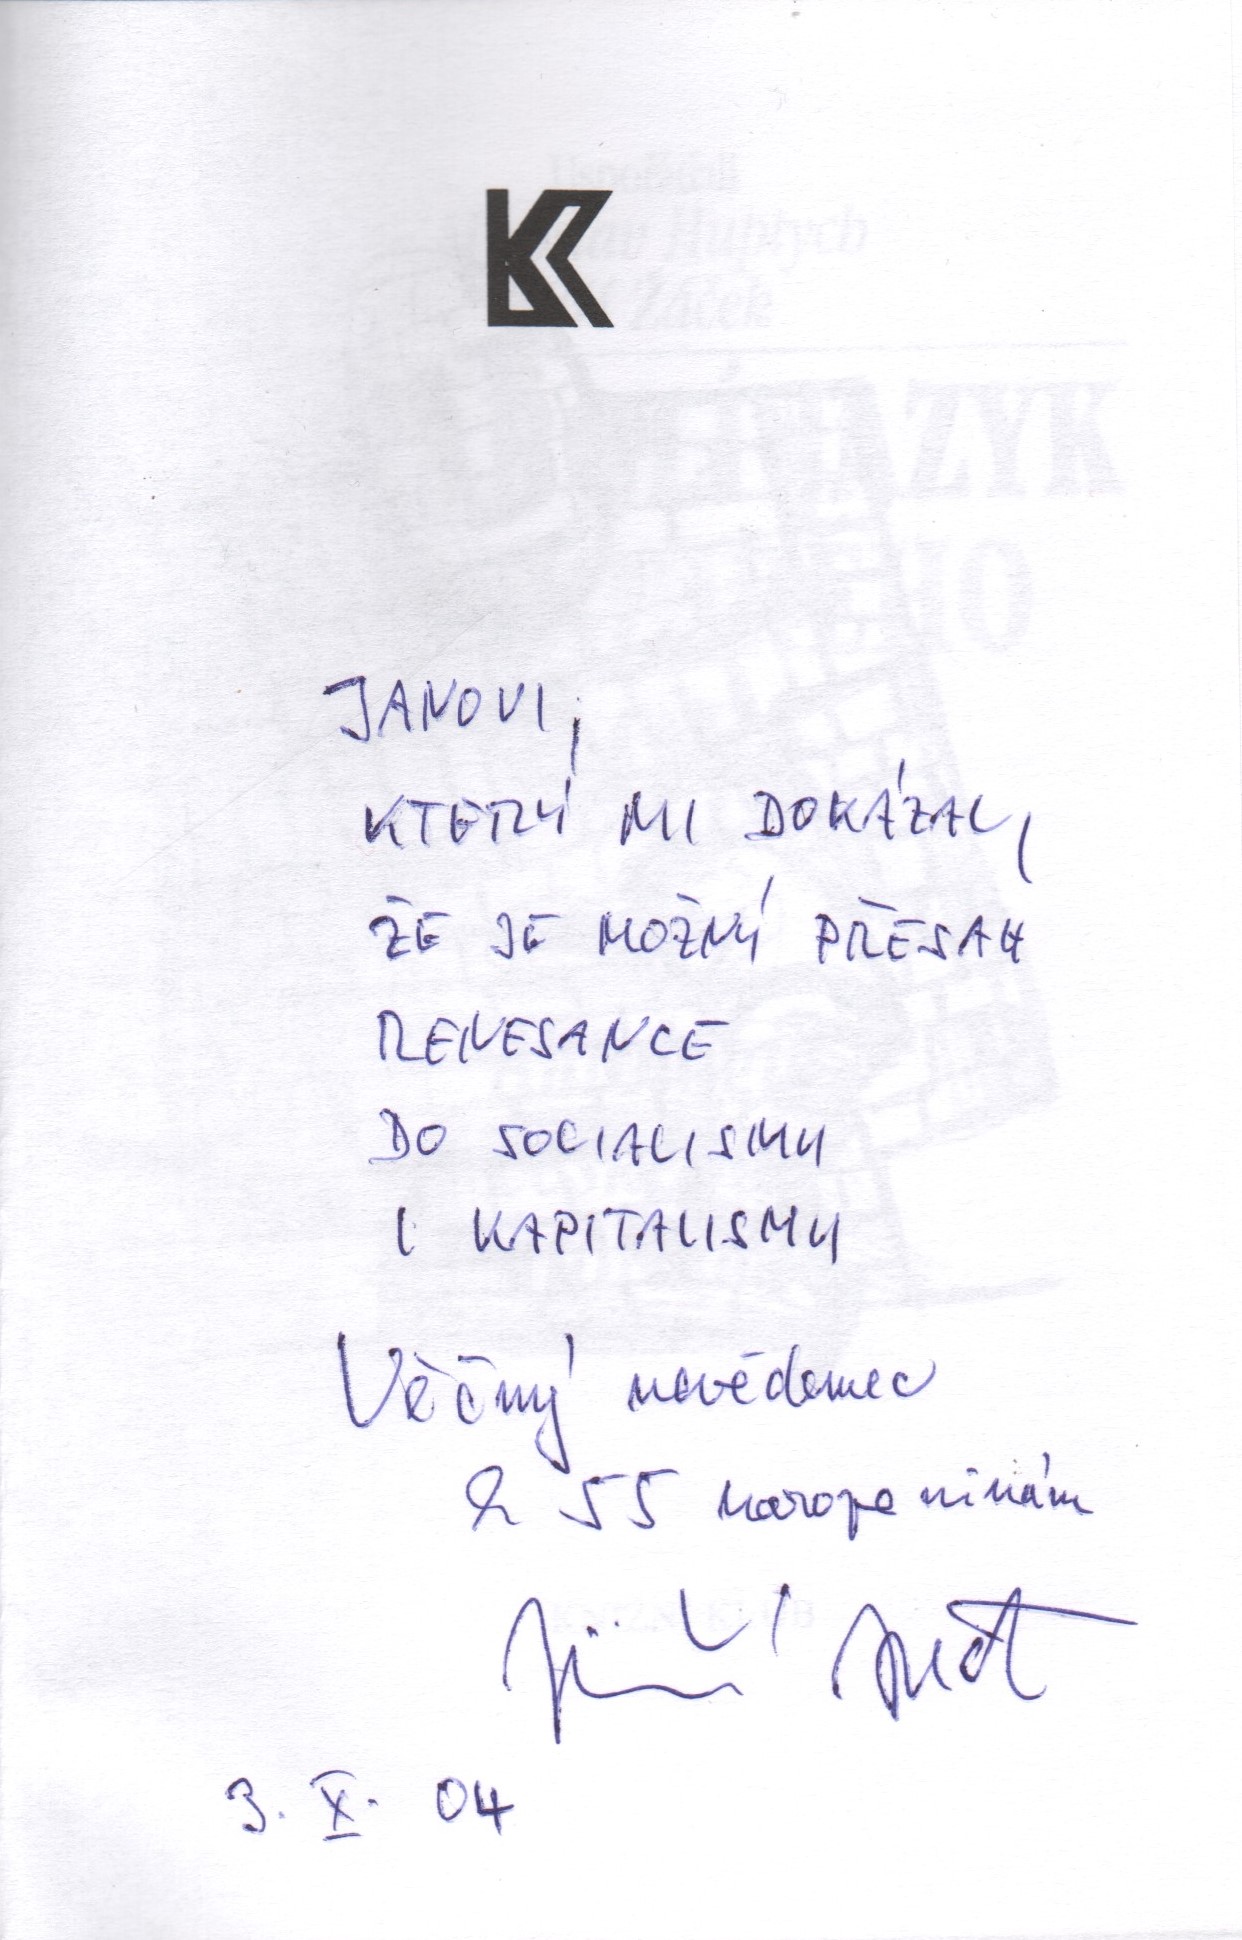 JANOVI,
KTERÝ MI DOKÁZAL,
ŽE JE MOŽNÝ PŘESAH
RENESANCE
DO SOCIALISMU
I KAPITALISMU
Věčný nevědomec
k 55 narozeninám
Jiří
3. X. 04